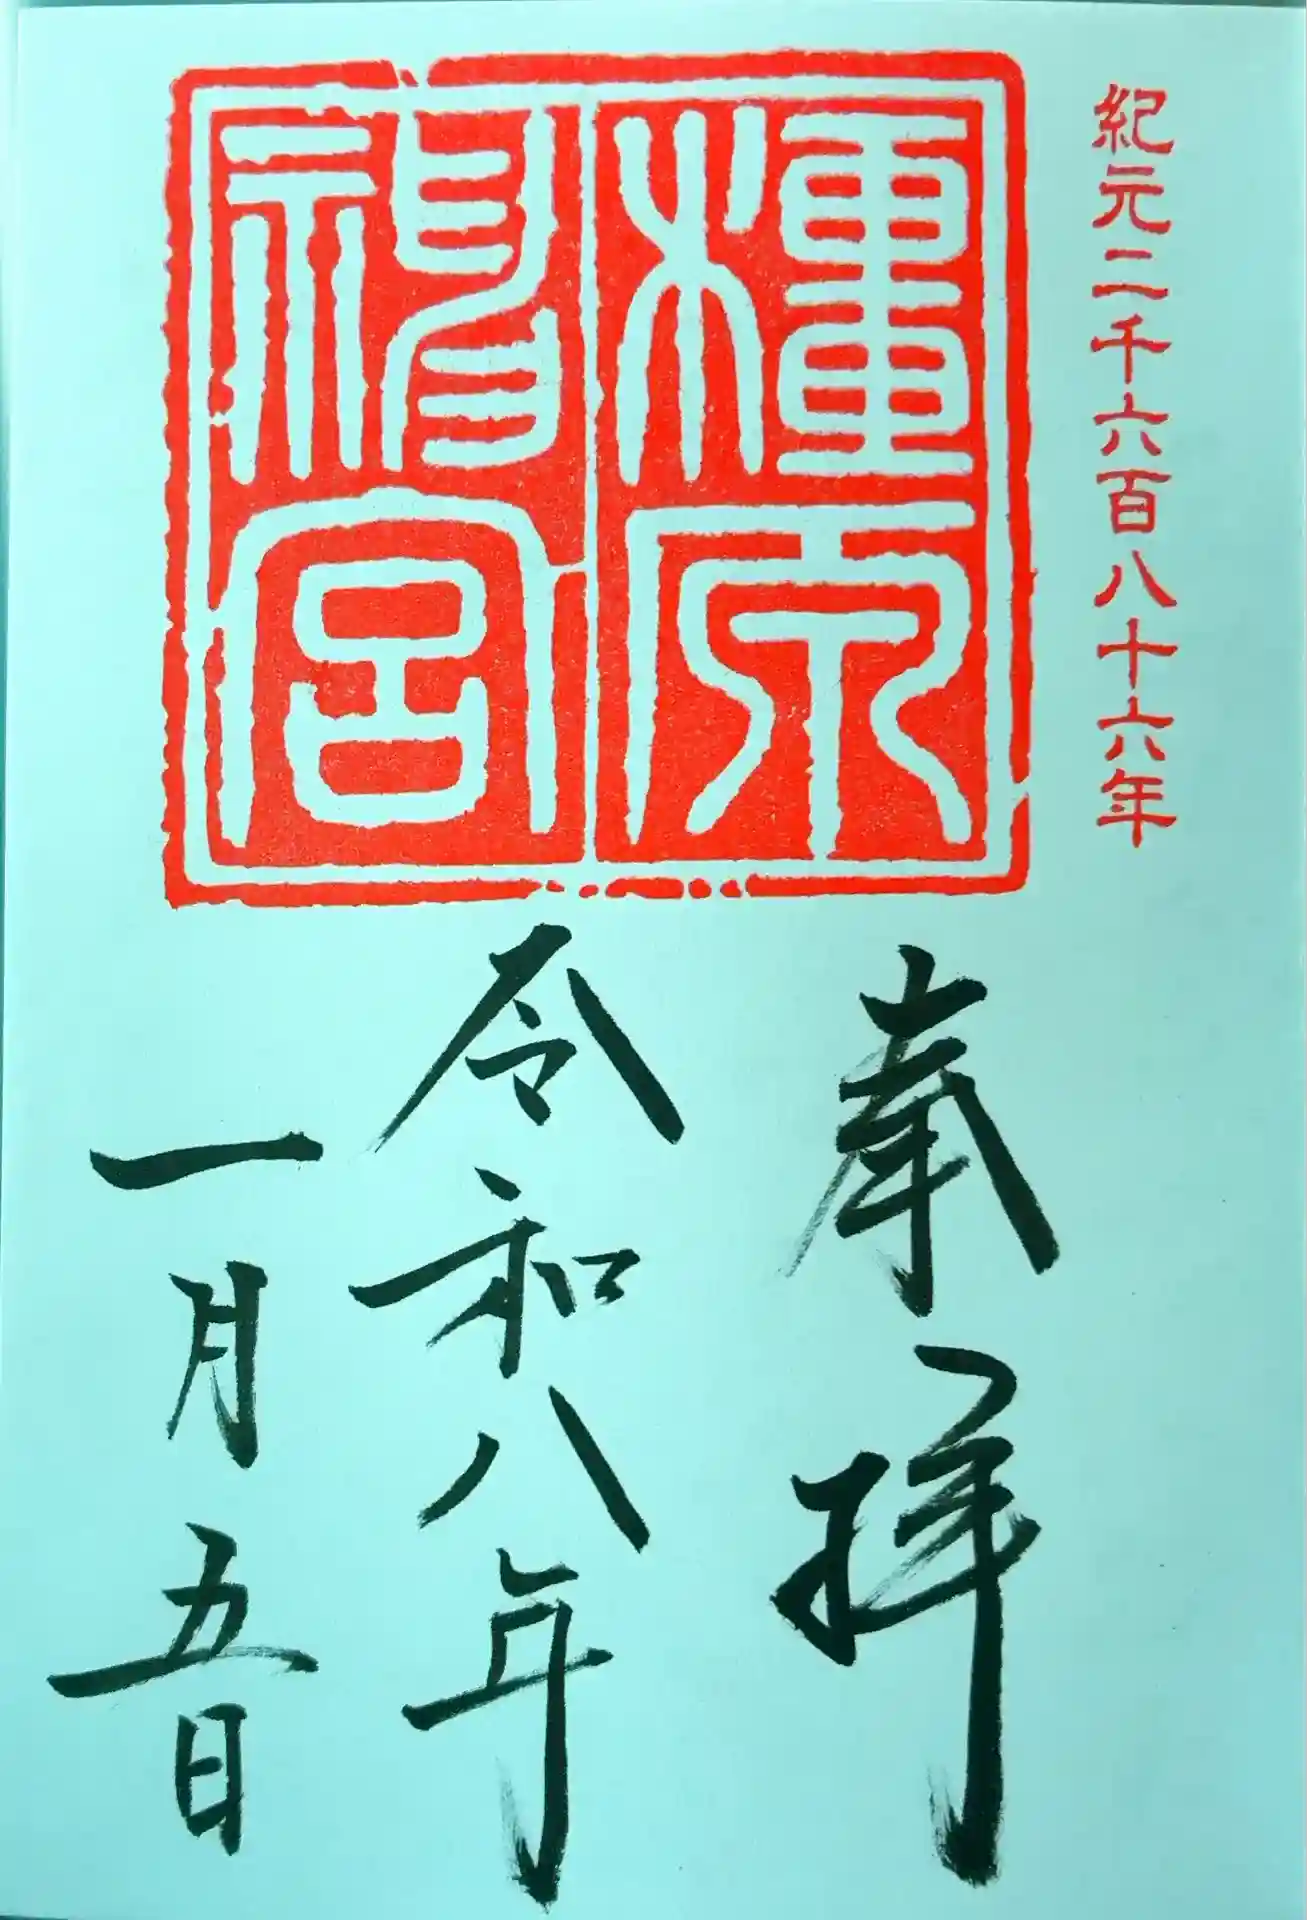 紀元二千六百八十六年
橿原
神宮
奉拝
令和八年
一月五日